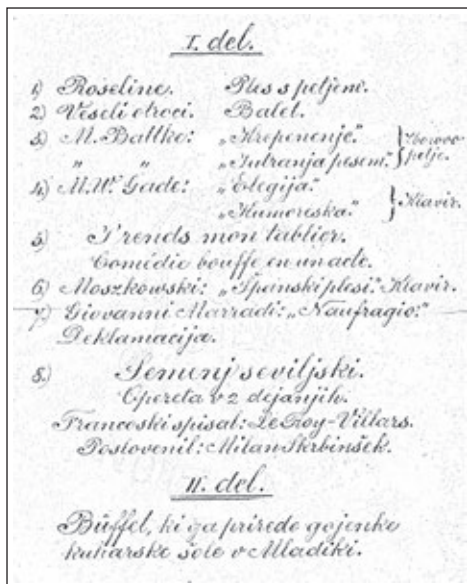 I. del.
1) Roseline. Ples s petjem.
2) Veseli otroci. Balet.
3) M. Battke: „Hrepenenje." } Zborovo
„ „ „Jutranja pesem." } petje.
4) N. W. Gade: „Elegija."
„Humoreska." } Klavir.
5) Prends mon tablier.
Comédie bouffe en un acte.
6) Moszkowski: „Španski plesi." Klavir.
7) Giovanni Marradi: „Naufragio."
Deklamacija.
8.) Semenj seviljski.
Opereta v 2 dejanjih.
Francoski spisal: Le Roy-Villars.
Poslovenil: Milan Skrbinšek.
II. del.
Büffet, ki ga prirede gojenke
kuharske šole v Mladiki.